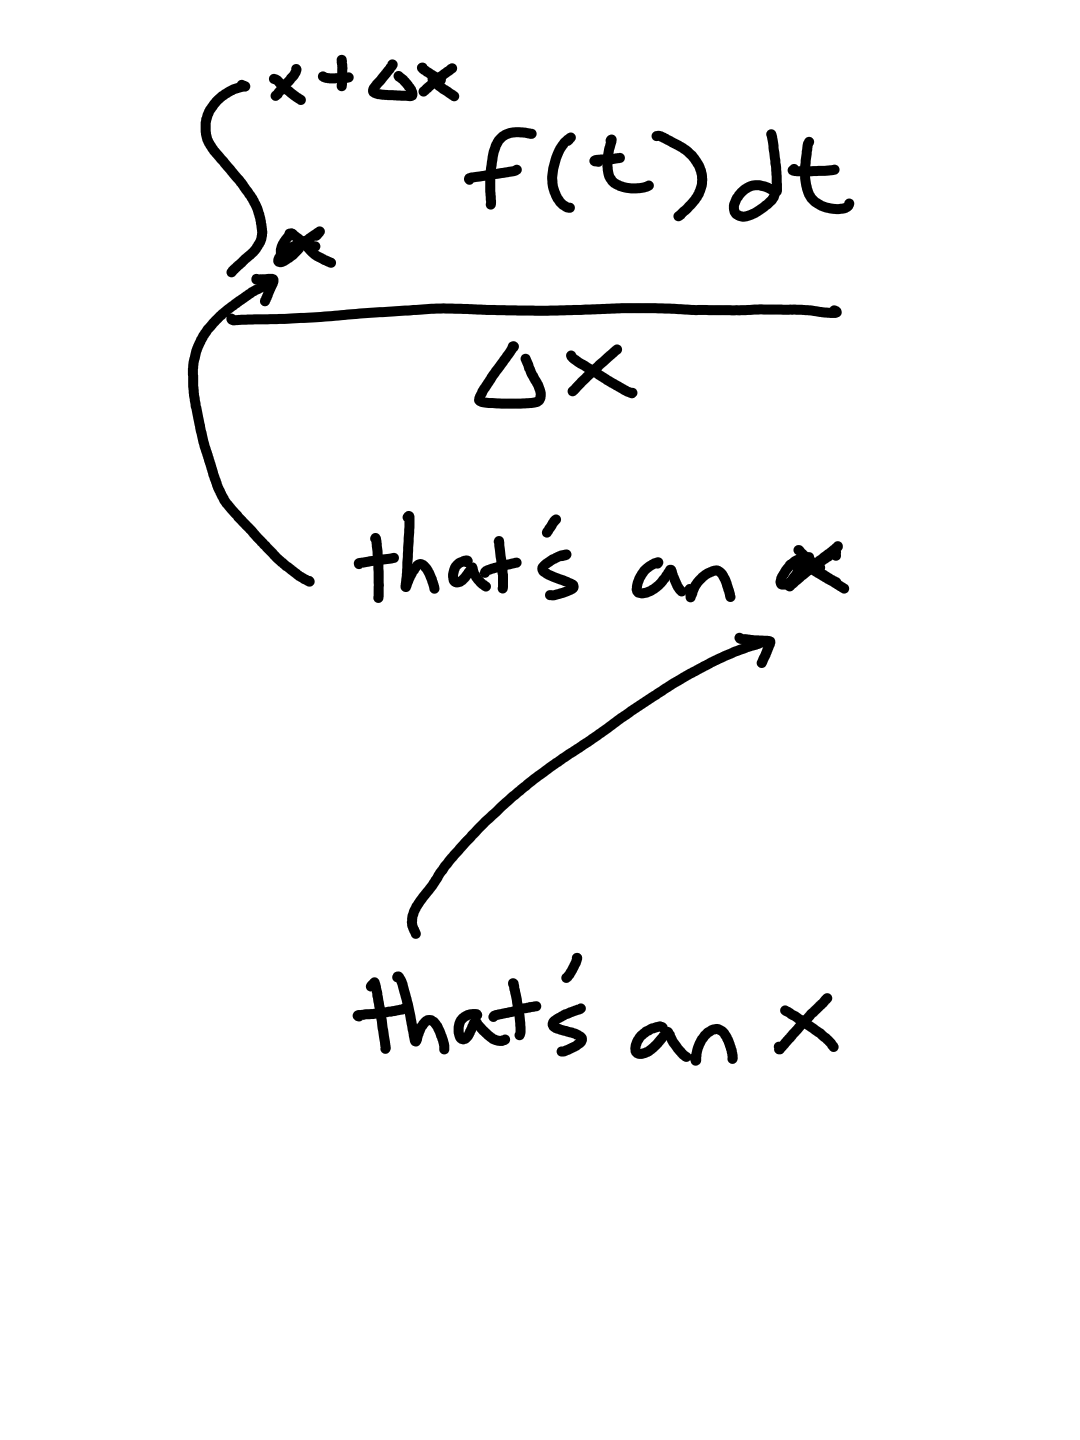 ∫ x + Δx
f(t) dt
x
Δx
that's an x
that's an x